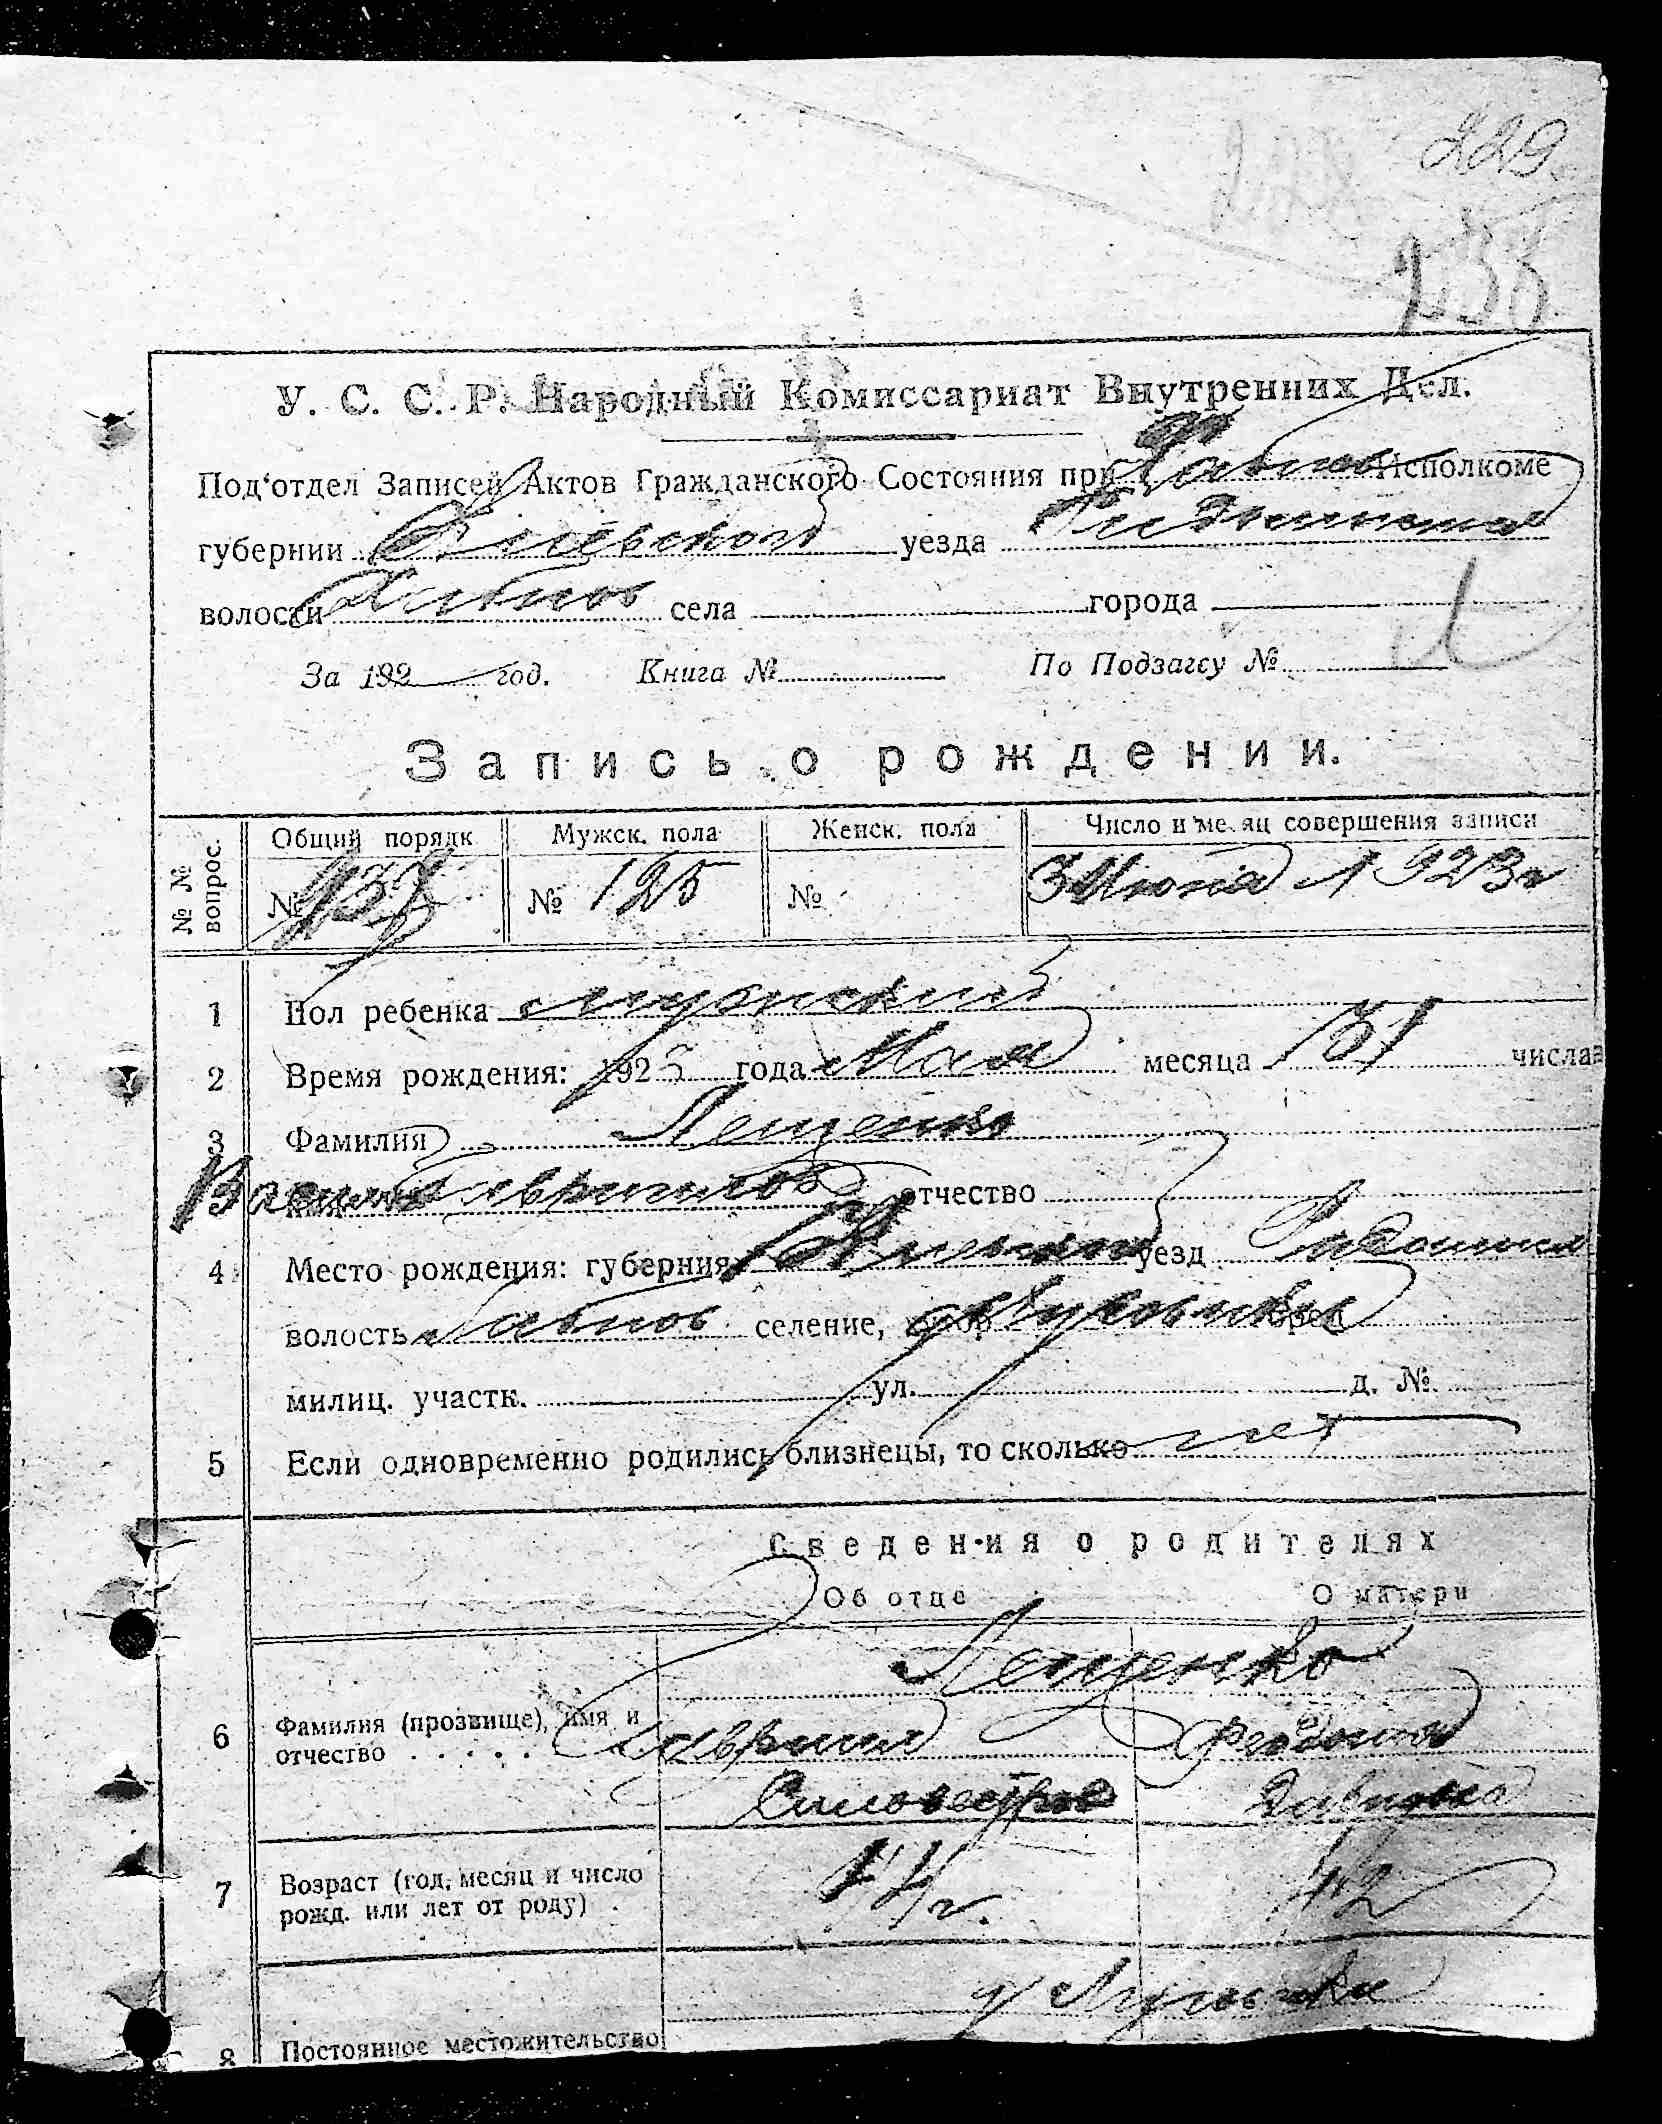 229
У. С. С. Р. Народный Комиссариат Внутренних Дел.
Под'отдел Записей Актов Гражданского Состояния при Исполкоме
губернии Киевской уезда
волости Хабнов села города
За 192 год. Книга № По Подзагсу №
Запись о рождении.
№ № вопрос. Общий порядк Мужск. пола Женск. пола Число и месяц совершения записи
№ № 125 № 3 Июня 1923 г
1 Пол ребенка мужской
2 Время рождения: 1923 года Мая месяца 31 числа
3 Фамилия Лещенко
Василий Гаврилов отчество
4 Место рождения: губерния Киевская уезд
волость Хабнов селение,
милиц. участк. ул. д. №
5 Если одновременно родились близнецы, то сколько нет
Сведения о родителях
Об отце О матери
Лещенко
6 Фамилия (прозвище), имя и
отчество . . . . . Гавриил Феодосия
Силовестров Давидова
7 Возраст (год, месяц и число
рожд. или лет от роду) . 44 г. 42
8 Постоянное местожительство